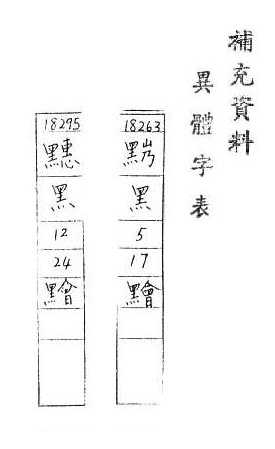 補充資料
異體字表
18263
黑
5
17
䵳
18295
黑
12
24
䵳